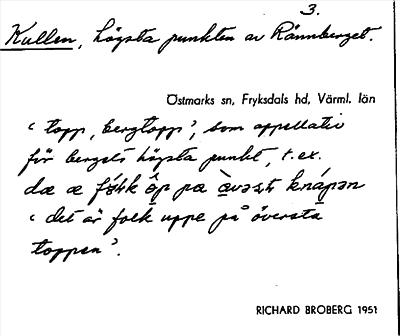 3.
Kullen, högsta punkten av Rännberget.
Östmarks sn, Fryksdals hd, Värml. län
‘topp, bergtopp’, som appellativ
för bergets högsta punkt, t. ex.
dæ æ fǻɫk ôp pæ knápən
‘det är folk uppe på översta
toppen’.
RICHARD BROBERG 1951